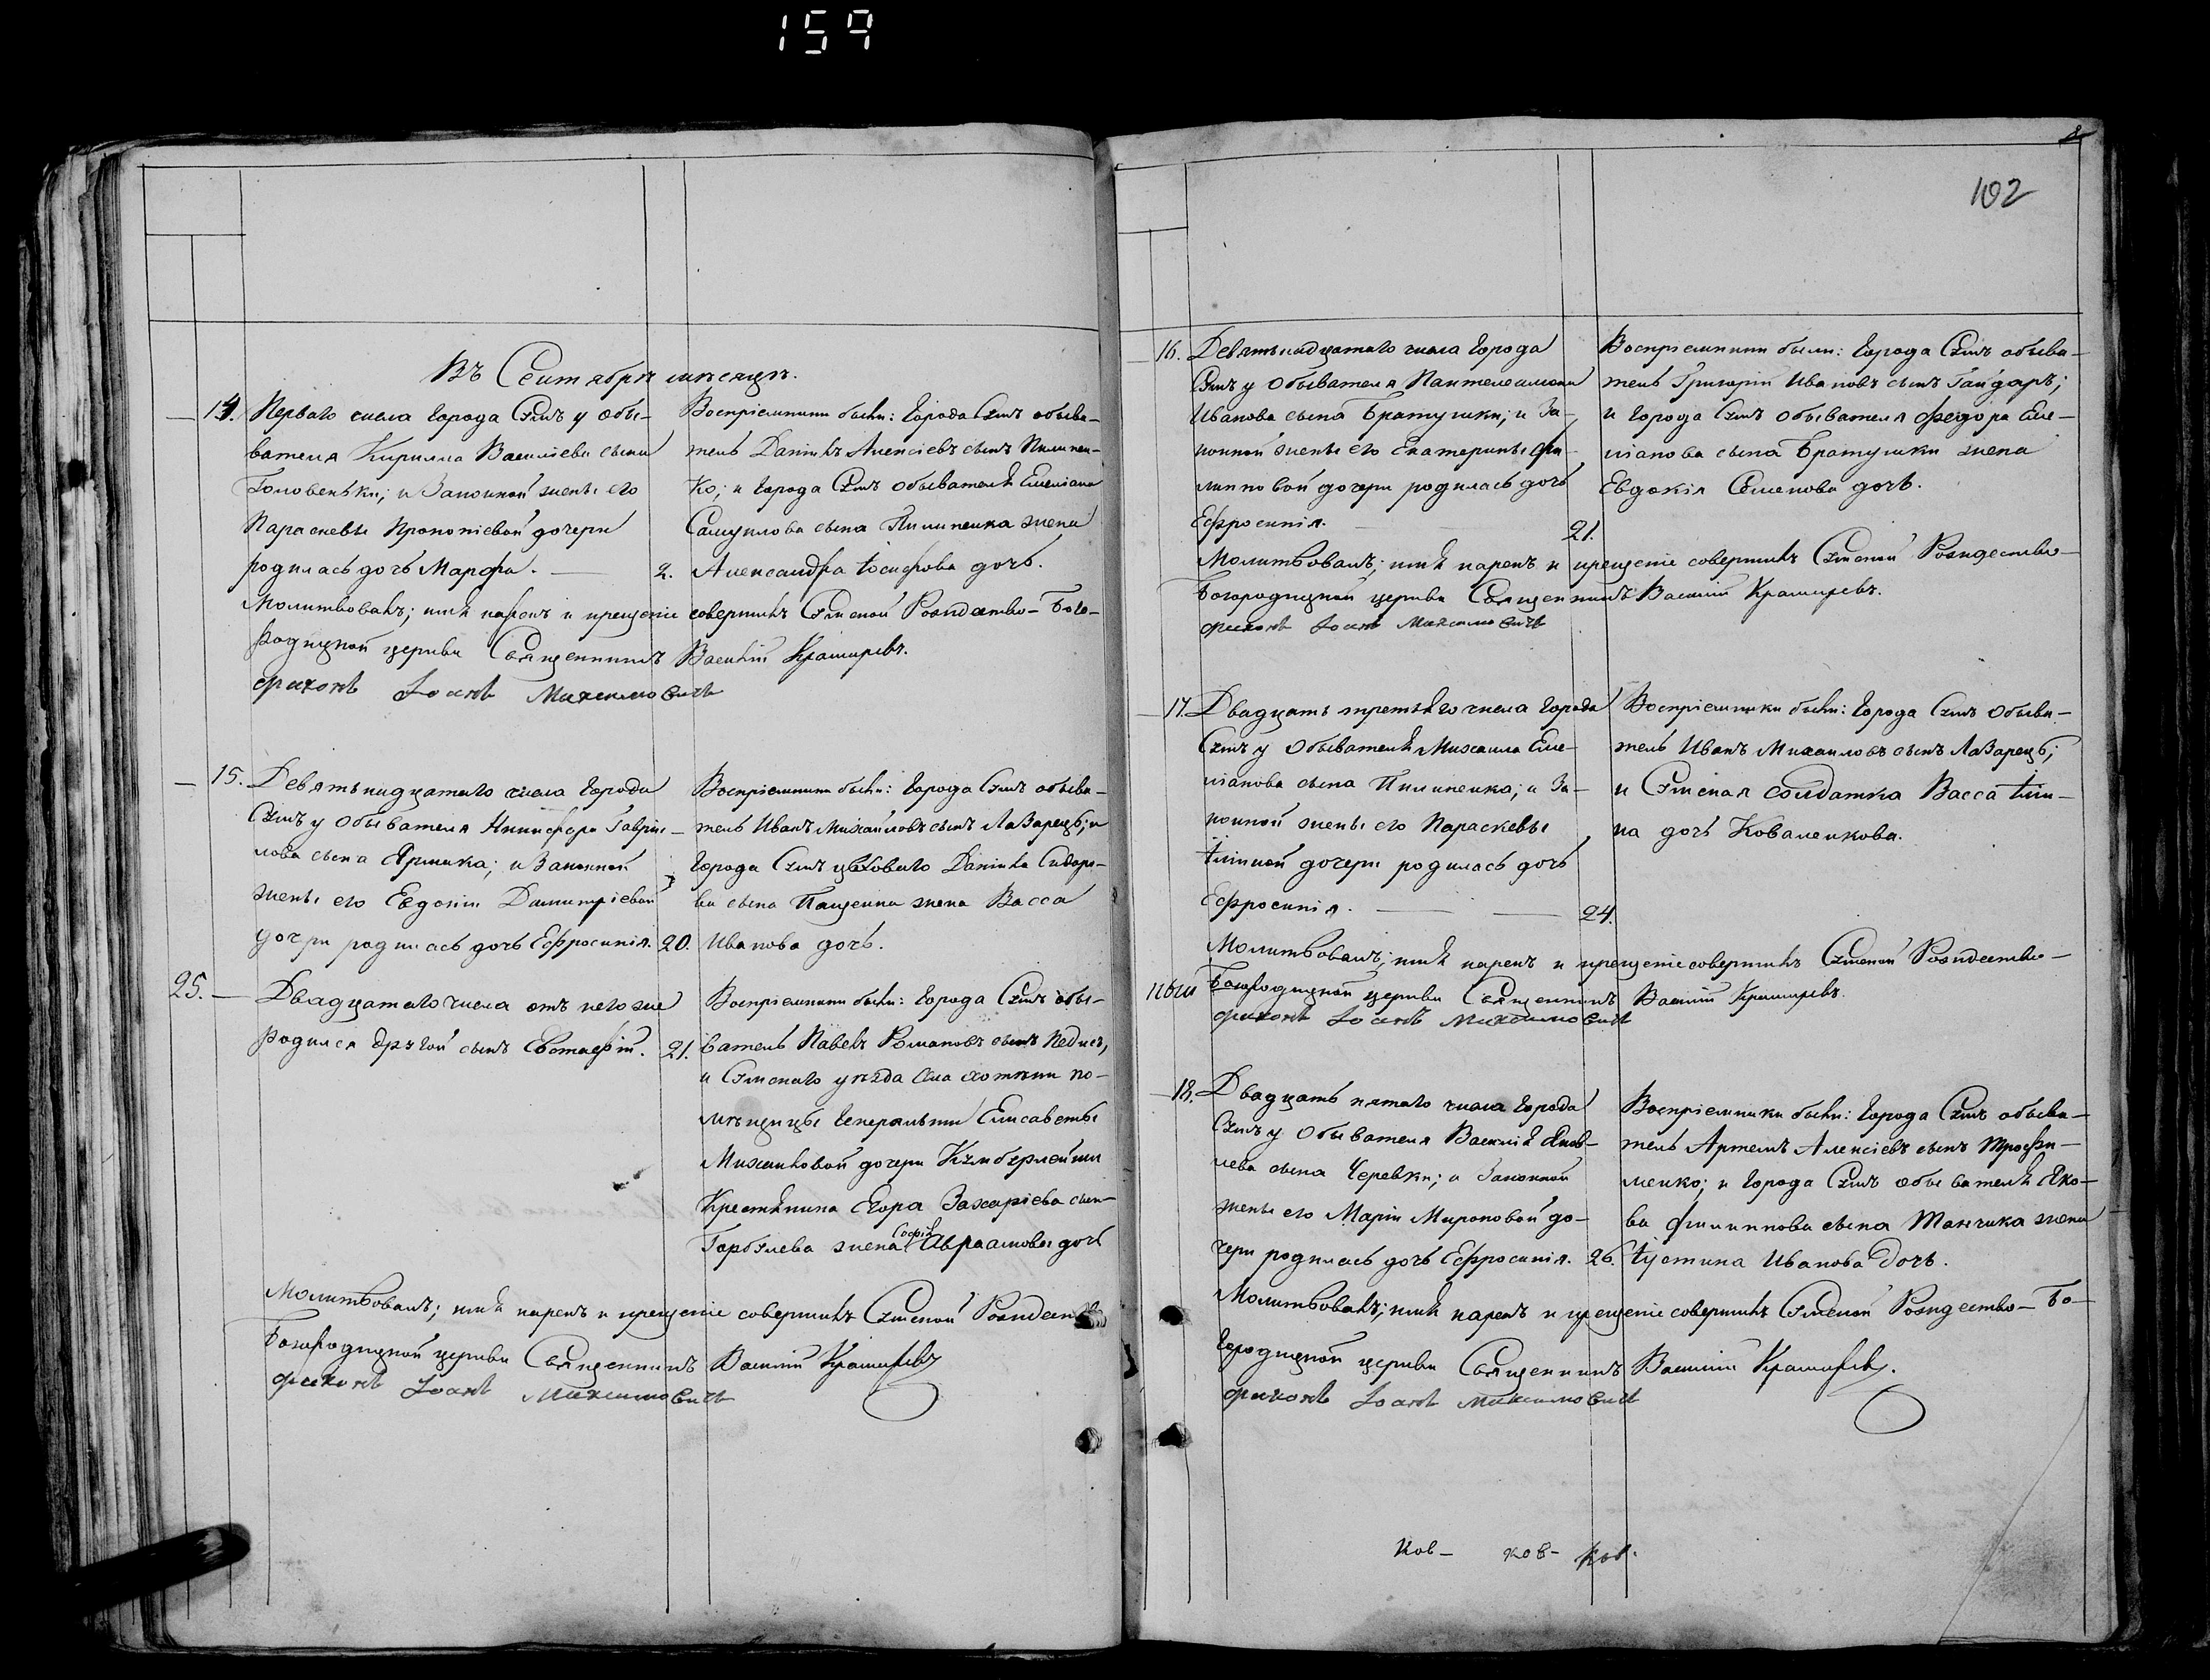 159
Въ Сентябрѣ мѣсяцѣ.
14. Перваго числа города Сумъ у обы-
вателя Кирилла Василіева сына
Головеньки; и Законной жены его
Параскевы Прокопіевой дочери
родилась дочь Марфа. — 2.
Воспріемники были: города Сумъ обыва-
тель Даніилъ Алексіевъ сынъ Пилипен-
ко; и города Сумъ обывателя Емеліана
Самуилова сына Пилипенка жена
Александра Іосифова дочь.
Молитвовалъ; имя нарекъ и крещеніе совершилъ Сумской Рождество-Бого-
родицкой церкви Священникъ Василій Крамаревъ.
диаконъ Іоаннъ Максимовичъ
15. Девятьнадцатаго числа города
Сумъ у обывателя Никифора Гаврiи-
лова сына Ярмака; и Законной
жены его Евдокіи Димитріевой
дочери родилась дочь Ефросинія. 20.
Воспріемники были: города Сумъ обыва-
тель Иванъ Михайловъ сынъ Лазарецъ; и
города Сумъ цѣховаго Даніила Сидоро-
ва сына Пащенка жена Васса
Иванова дочь.
25. — Двадцатаго числа отъ него же
родился другой сынъ Евстафій. 21.
Воспріемники были: города Сумъ обы-
ватель Павелъ Романовъ сынъ Педисъ,
и Сумскаго уѣзда села Хотѣни по-
мѣщицы генеральши Елисаветы
Михайловой дочери Кумбурлейши
Крестьянина Егора Захаріева сына
Горбулева жена Софія Авраамова дочь
Молитвовалъ; имя нарекъ и крещеніе совершилъ Сумской Рождество
Богородицкой церкви Священникъ Василій Крамаревъ
диаконъ Іоаннъ Максимовичъ
102
16. Девятьнадцатаго числа города
Сумъ у обывателя Пантелеимона
Иванова сына Братушки; и За-
конной жены его Екатерины Фи-
липповой дочери родилась дочь
Ефросинія. — 21.
Воспріемники были: города Сумъ обыва-
тель Григорій Ивановъ сынъ Гайдаръ;
и города Сумъ обывателя Федора Еме-
ліанова сына Братушки жена
Евдокія Семенова дочь.
Молитвовалъ; имя нарекъ и крещеніе совершилъ Сумской Рождество-
Богородицкой церкви Священникъ Василій Крамаревъ.
диаконъ Іоаннъ Максимовичъ
17. Двадцать третьяго числа города
Сумъ у обывателя Михаила Еме-
ліанова сына Пилипенка; и За-
конной жены его Параскевы
Іліиной дочери родилась дочь
Ефросинія. — — 24.
Воспріемники были: города Сумъ обыва-
тель Иванъ Михаиловъ сынъ Лазарецъ;
и Сумская солдатка Васса Іліи-
на дочь Коваленкова.
Молитвовалъ; имя нарекъ и крещеніе совершилъ Сумской Рождество-
Богородицкой церкви Священникъ Василій Крамаревъ.
диаконъ Іоаннъ Максимовичъ
18. Двадцать пятаго числа города
Сумъ у обывателя Василія Яков-
лева сына Черевки; и Законной
жены его Маріи Мироновой до-
чери родилась дочь Ефросинія. 26.
Воспріемники были: города Сумъ обыва-
тель Артемъ Алексіевъ сынъ Трофи-
менко; и города Сумъ обывателя Яко-
ва Филиппова сына Танчика жена
Іустина Иванова дочь.
Молитвовалъ; имя нарекъ и крещеніе совершилъ Сумской Рождество-Бо-
городицкой церкви Священникъ Василій Крамаревъ.
диаконъ Іоаннъ Максимовичъ
ков- ков- ков.